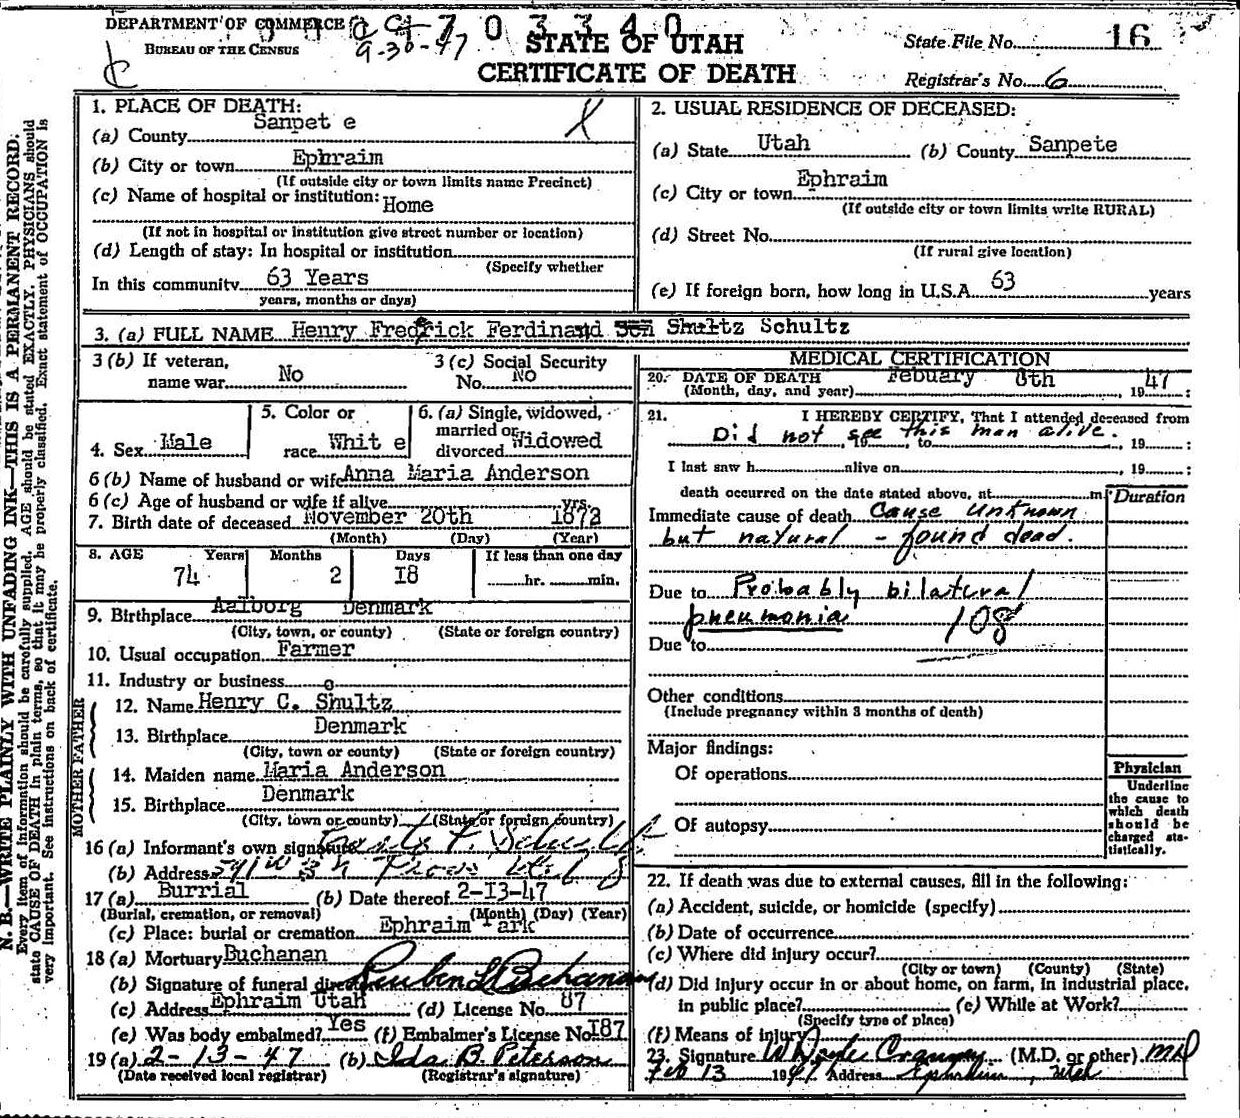 DEPARTMENT OF COMMERCE
BUREAU OF THE CENSUS
9-30-47
703340
STATE OF UTAH
CERTIFICATE OF DEATH
State File No. 16
Registrar's No. 6
N. B.—WRITE PLAINLY WITH UNFADING INK—THIS IS A PERMANENT RECORD:
Every item of information should be carefully supplied. AGE should be stated EXACTLY. PHYSICIANS should
state CAUSE OF DEATH in plain terms, so that it may be properly classified. Exact statement of OCCUPATION is
very important. See instructions on back of certificate.
1. PLACE OF DEATH:
(a) County Sanpet e
(b) City or town Ephraim
(If outside city or town limits name Precinct)
(c) Name of hospital or institution: Home
(If not in hospital or institution give street number or location)
(d) Length of stay: In hospital or institution
(Specify whether
In this community 63 Years
years, months or days)
2. USUAL RESIDENCE OF DECEASED:
(a) State Utah (b) County Sanpete
(c) City or town Ephraim
(If outside city or town limits write RURAL)
(d) Street No.
(If rural give location)
(e) If foreign born, how long in U.S.A. 63 years
3. (a) FULL NAME Henry Fredrick Ferdinand Shultz Schultz
3 (b) If veteran, name war No
3 (c) Social Security No. No
4. Sex Male
5. Color or race Whit e
6. (a) Single, widowed, married or divorced Widowed
6 (b) Name of husband or wife Anna Maria Anderson
6 (c) Age of husband or wife if alive yrs.
7. Birth date of deceased November 20th 1872
(Month) (Day) (Year)
8. AGE Years Months Days If less than one day
74 2 18 hr. min.
9. Birthplace Aalborg Denmark
(City, town, or county) (State or foreign country)
10. Usual occupation Farmer
11. Industry or business
FATHER
12. Name Henry C. Shultz
13. Birthplace Denmark
(City, town or county) (State or foreign country)
MOTHER
14. Maiden name Maria Anderson
15. Birthplace Denmark
(City, town or county) (State or foreign country)
16 (a) Informant's own signature
(b) Address
17 (a) Burrial (b) Date thereof 2-13-47
(Burial, cremation, or removal) (Month) (Day) (Year)
(c) Place: burial or cremation Ephraim Park
18 (a) Mortuary Buchanan
(b) Signature of funeral director Reuben L Buchanan
(c) Address Ephraim Utah (d) License No. 87
(e) Was body embalmed? Yes (f) Embalmer's License No. 187
19 (a) 2-13-47 (b) Ida B. Peterson
(Date received local registrar) (Registrar's signature)
MEDICAL CERTIFICATION
20. DATE OF DEATH Febuary 8th
(Month, day, and year) , 1947
21. I HEREBY CERTIFY, That I attended deceased from
Did not see this man alive. to , 19 :
I last saw h alive on , 19 :
death occurred on the date stated above, at m.
Duration
Immediate cause of death Cause unknown
but natural - found dead.
Due to Probably bilateral
pneumonia 108
Due to
Other conditions
(Include pregnancy within 3 months of death)
Major findings:
Of operations
Of autopsy
Physician
Underline
the cause to
which death
should be
charged sta-
tistically.
22. If death was due to external causes, fill in the following:
(a) Accident, suicide, or homicide (specify)
(b) Date of occurrence
(c) Where did injury occur?
(City or town) (County) (State)
(d) Did injury occur in or about home, on farm, in industrial place,
in public place? (e) While at Work?
(Specify type of place)
(f) Means of injury
23. Signature (M.D. or other) MD
Feb 13 1947 Address Ephraim, Utah